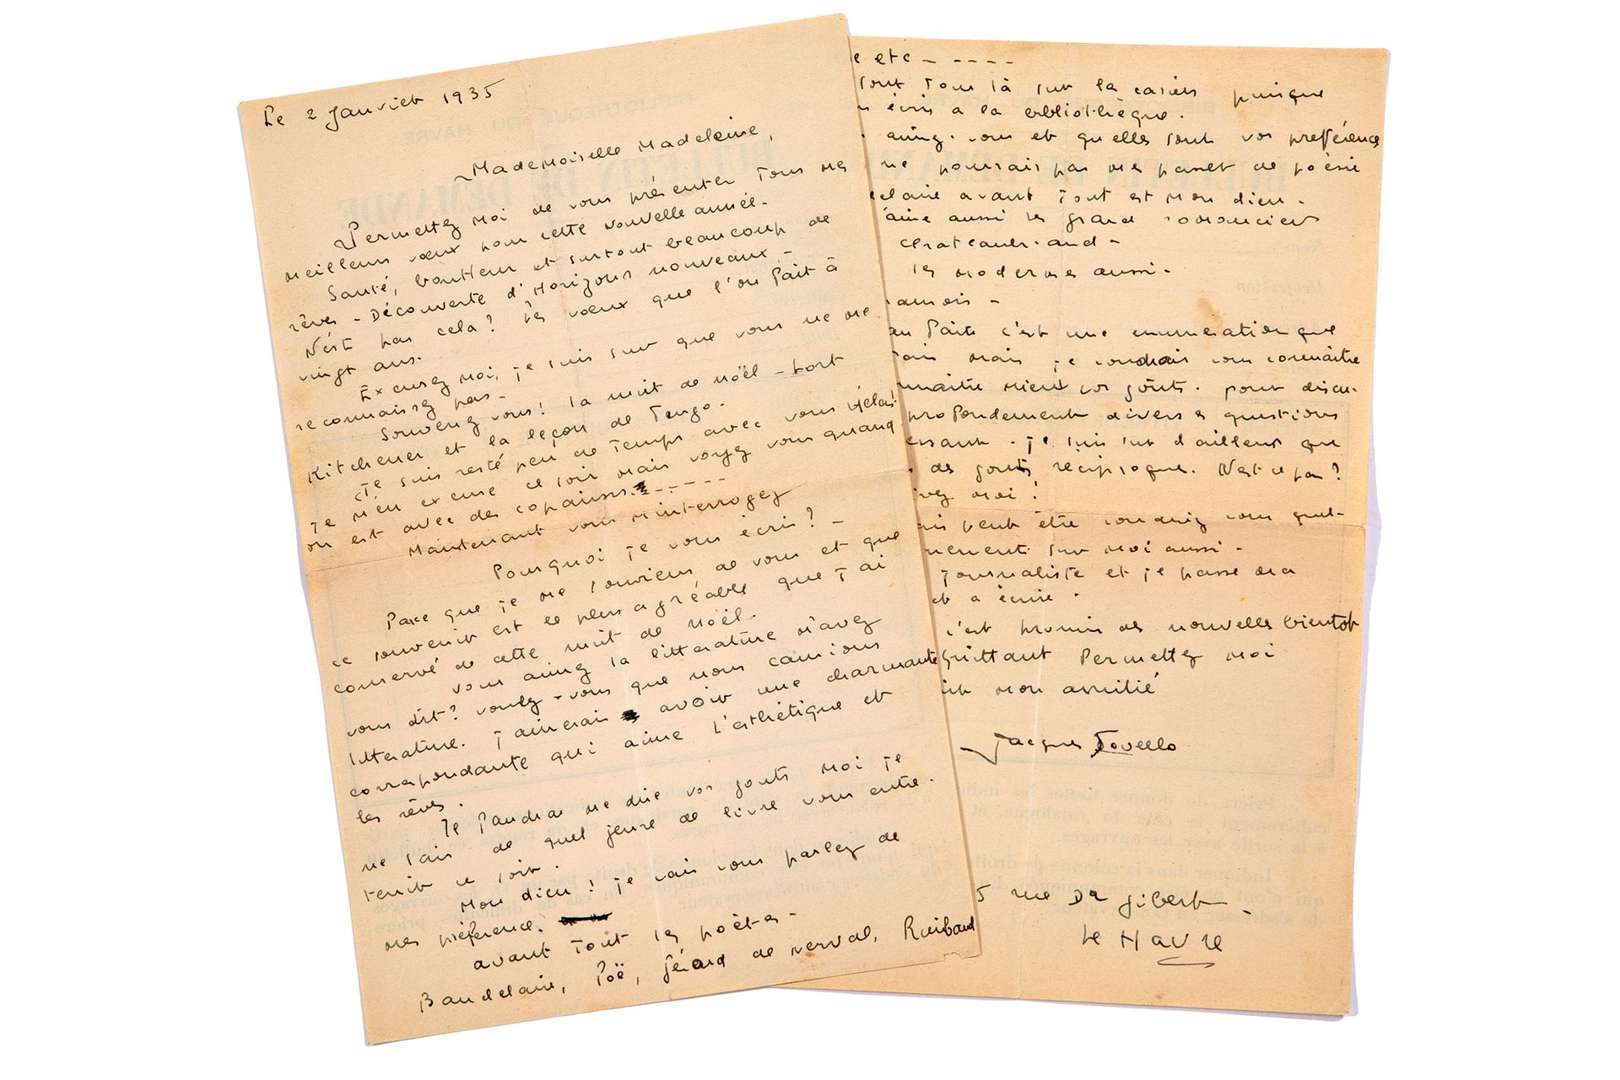 Le 2 Janvier 1935
Mademoiselle Madeleine,
Permettez moi de vous présenter tous mes
meilleurs vœux pour cette nouvelle année.
Santé, bonheur et surtout beaucoup de
rêves - Découverte d'Horizons nouveaux -
N'est pas cela? les vœux que l'on fait à
vingt ans.
Excusez moi, je suis sur que vous ne me
reconnaissez pas -
Souvenez vous! la nuit de Noël - hort
Kitchener et la leçon de Tango.
Je suis resté peu de temps avec vous hélas!
je m'en excuse ce soir mais voyez vous quand
on est avec des copains
Maintenant vous m'interrogez
Pourquoi je vous écris? -
Parce que je me souviens de vous et que
ce souvenir est le plus agréable que j'ai
conservé de cette nuit de Noël.
vous aimez la littérature m'avez
vous dit? voulez-vous que nous causions
littérature. J'aimerais avoir une charmante
correspondante qui aime l'esthétique et
les rêves.
Il faudra me dire vos gouts moi je
ne sais de quel genre de livre vous entre.
tenir ce soir.
Mon dieu! je vais vous parlez de
mes préférence.
avant tout les poètes -
Baudelaire, Poë, Gérard de nerval, Raibaud
e etc - - - - -
sont tous là sur la casier puisque
écris a la bibliothèque.
aimez-vous et quelles sont vos prefférence
ne pourrais pas me passer de poèsie
elaire avant tout est mon dieu -
aime aussi les grand romancier
chateaubriand -
les modernes aussi -
amois -
au fait c'est une enumeration que
ais mais je voudrais vous connaitre
nnaitre mieux vos goûts. pour discu-
profondement divers es questions
essant. je suis sur d'ailleur que
des gouts réciproque. N'est ce pas?
ivez moi!
ais peut être voudriez vous quel-
nement sur moi aussi -
journaliste et je passe ma
a écrire.
c'est promis des nouvelles bientot
quittant Permettez moi
mon amitié
Jacques Tovello
5 rue Dr Gibert
Le Havre
BIBLIOTHÈQUE DU HAVRE
BULLETIN DE DEMANDE